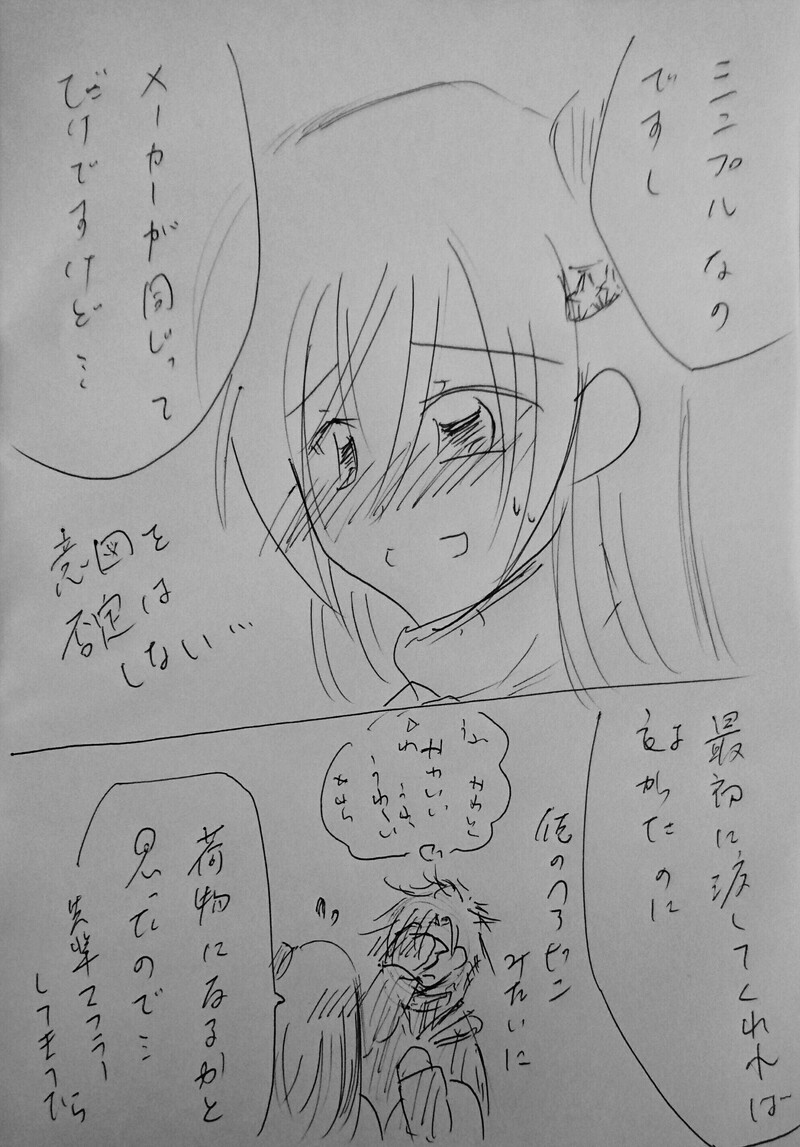 シンプルなの
ですし
メーカーが同じって
だけですけど…
意図を
否定は
しない…
最初に渡してくれれば
良かったのに
俺のヘアピン
みたいに
かわいい
荷物になるかと
思ったので…
先輩マフラー
してきてたら